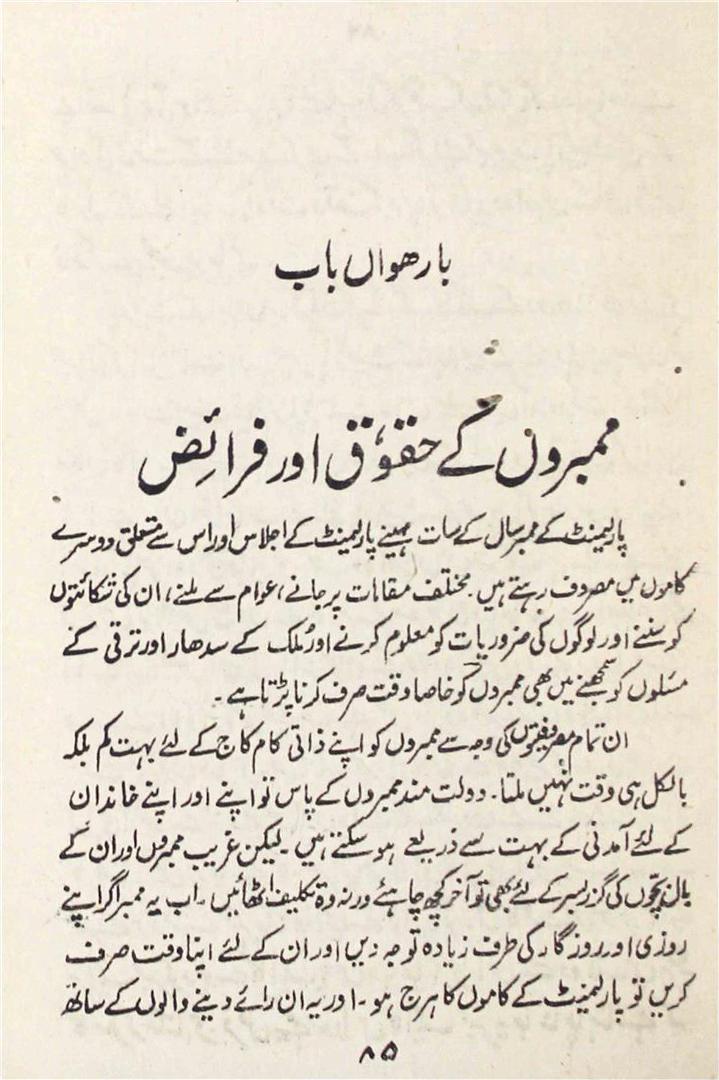 بارھواں باب
ممبروں کے حقوق اور فرائض
پارلیمنٹ کے ممبر سال کے سات مہینے پارلیمنٹ کے اجلاس اور اس سے متعلق دوسرے
کاموں میں مصروف رہتے ہیں۔ مختلف مقامات پر جانے، عوام سے ملنے، ان کی شکائتوں
کو سننے اور لوگوں کی ضروریات کو معلوم کرنے اور مُلک کے سدھار اور ترقی کے
مسئلوں کو سمجھنے میں بھی ممبروں کو خاصا وقت صرف کرنا پڑتا ہے۔
ان تمام مصروفیتوں کی وجہ سے ممبروں کو اپنے ذاتی کام کاج کے لئے بہت کم بلکہ
بالکل ہی وقت نہیں ملتا۔ دولت مند ممبروں کے پاس تو اپنے اور اپنے خاندان
کے لئے آمدنی کے بہت سے ذریعے ہو سکتے ہیں۔ لیکن غریب ممبروں اور ان کے
بال بچّوں کی گزر بسر کے لئے بھی تو آخر کچھ چاہئے ورنہ وہ تکلیف اٹھائیں۔ اب یہ ممبر اگر اپنے
روزی اور روزگار کی طرف زیادہ توجہ دیں اور ان کے لئے اپنا وقت صرف
کریں تو پارلیمنٹ کے کاموں کا ہرج ہو۔ اور یہ ان رائے دینے والوں کے ساتھ
۸۵